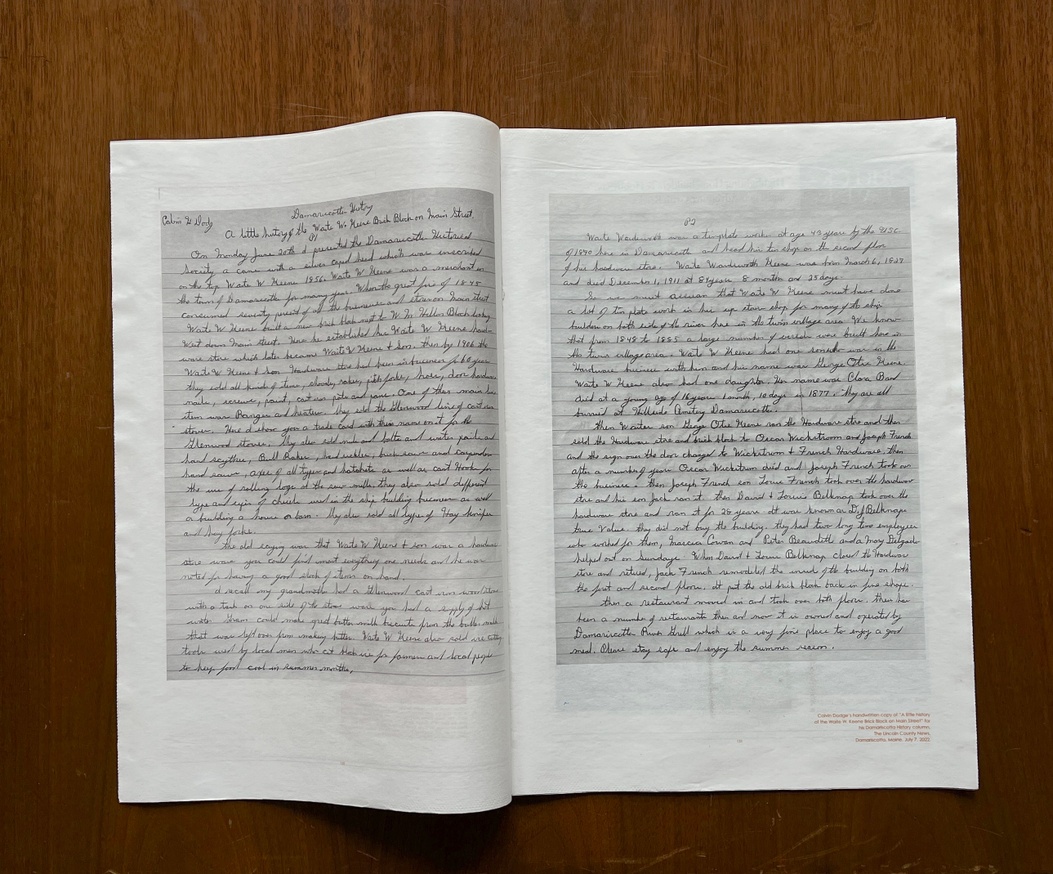 Calvin G Dodge
Damariscotta History
A little history of the Waite W. Keene Brick Block on Main Street.
P1
On Monday June 20th I presented the Damariscotta Historical
Society a cane with a silver caped head which was inscribed
on the top Waite W Keene 1856. Waite W Keene was a merchant in
the town of Damariscotta for many years. When the great fire of 1845
consumed seventy precent of all the business and stores on Main Street
Waite W Keene built a new brick block next to W. M. Hallin Block
West down Main street. Here he established his Waite W Keene hard-
ware store which later became Waite W Keene & son. Then by 1906 the
Waite W Keene & son Hardware store had been in business for 60 years
they sold all kinds of tin, shovels, rakes, pitch forks, hoes, door hardware
nails, screws, paint, cast iron pots and pans. One of their main big
item was Ranges and Heaters. They sold the Glenwood line of cast iron
stoves. Here I show you a trade card with their name on it for the
Glenwood stoves. They also sold nuts and bolts and water pails and
hand scythes, Bull Rakes, hand sickles, buck saws and carpenter
hand saws, axes of all types and hatchets as well as cast Hooks for
the use of rolling logs at the saw mills, they also sold different
type and sizes of chisels used in the ship building business as well
as building a house or barn. They also sold all types of Hay Knifes
and hay forks.
The old saying was that Waite W Keene & son was a hardware
store were you could find most everything one needs and she was
noted for having a good stock of items on hand.
I recall my grandmother had a Glenwood cast iron wood stove
with a tank on one side of the stove were you had a supply of hot
water. Gram could make good butter milk biscuits from the butter milk
that was left over from making butter. Waite W Keene also sold ice cutting
tools used by local men who cut block ice for farmers and local people
to keep food cool in summer months.
P2
Waite Wadsworth was a tin plate worker at age 43 years by the USC
of 1870 here in Damariscotta and head his tin shop on the second floor
of his hardware store. Waite Wadsworth Keene was born March 6, 1827
and died December 1, 1911 at 84 years 8 months and 25 days.
So we must assume that Waite W Keene must have done
a lot of tin plate work in his up stairs shop for many of the ship
builders on both side of the river here in the twin village area. We know
that from 1848 to 1885 a large number of vessels were built here in
the twin village area. Waite W Keene had one son who was in the
Hardware business with him and his name was George Otis Keene.
Waite W Keene also had one daughter. Her name was Clara
died at a young age of 16 years 1 month, 10 days in 1877. They are all
burried at Hillside Cemetery Damariscotta.
Then Waites son George Otis Keene ran the Hardware store and then
sold the Hardware store and brick block to Oscar Wickstrom and Joseph French
and the sign over the door changed to Wickstrom & French Hardware. Then
after a number of years Oscar Wickstrom died and Joseph French took over
the business. Then Joseph French son Louis French took over the hardware
store and his son Jack ran it. Then David & Louise Belknap took over the
hardware store and ran it for 25 years it was known as D&L Belknaps
true Value. They did not buy the building. They had two long time employees
who worked for them, Cowan and Peter Beaudette and a Mary Delgado
helped out on Sundays. When David & Louise Belknap closed the Hardware
store and retired, Jack French remodeled the inside of the building on both
the first and second floors. It put the old brick block back in fine shape.
Then a restaurant moved in and took over both floors. There has
been a number of restaurants there and now it is owned and operated by
Damariscotta River Grill which is a very fine place to enjoy a good
meal. Please stay safe and enjoy the summer season.
Calvin Dodge's handwritten copy of "A little history
of the Waite W. Keene Brick Block on Main Street" for
his Damariscotta History column,
The Lincoln County News,
Damariscotta, Maine. July 7, 2022.